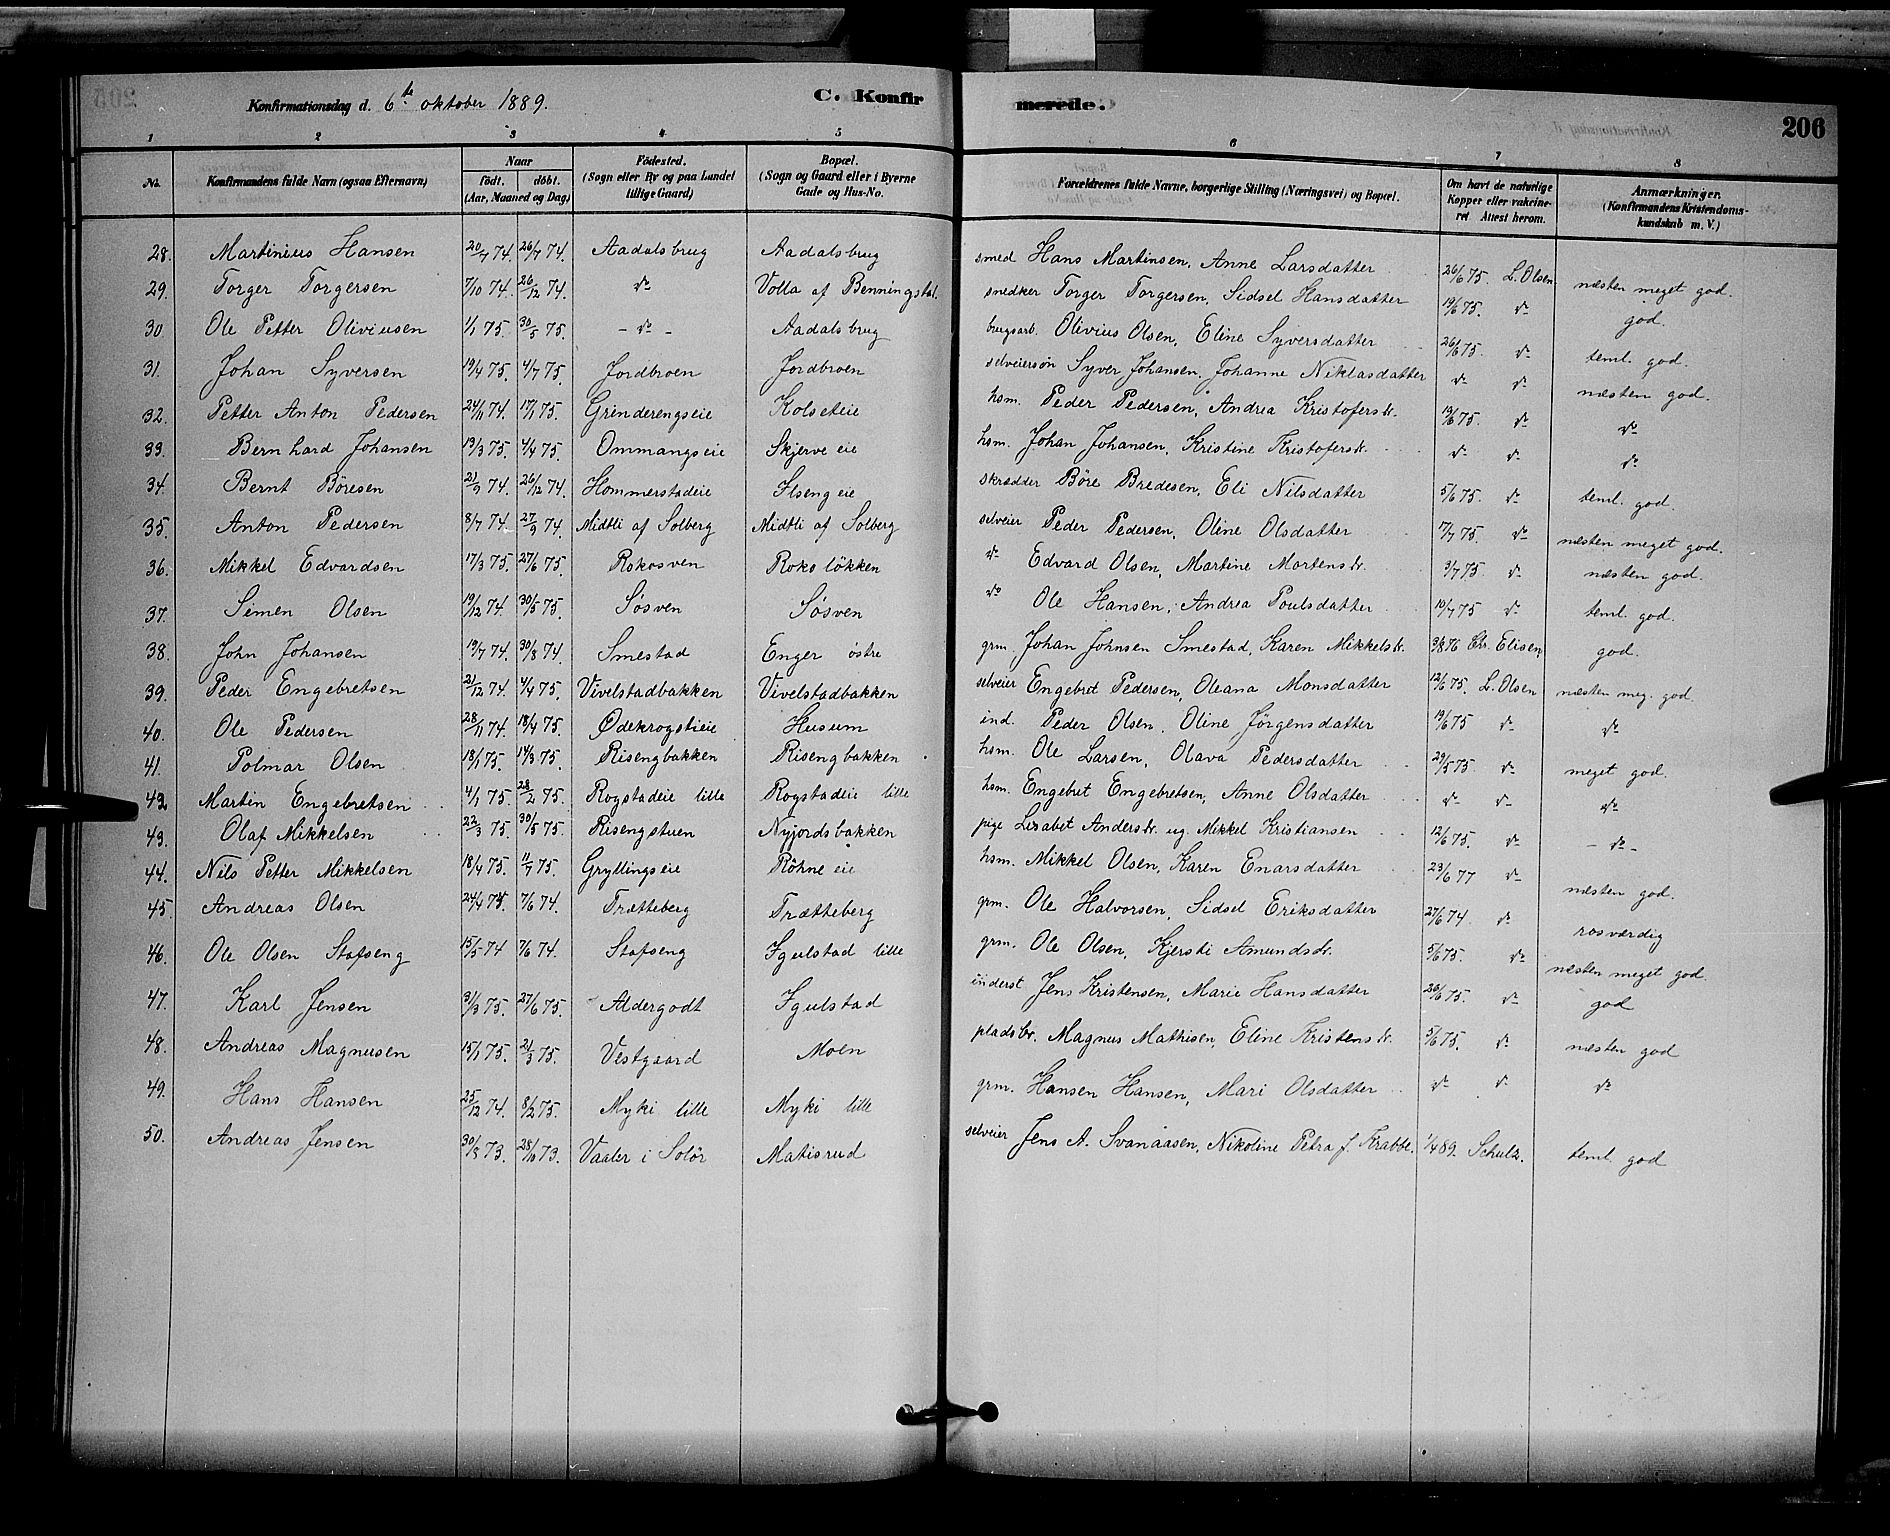 Konfirmationsdag d. 6te oktober 1889. C. Konfir merede. 206
1 2 3 4 5 6 7 8
No. Konfirmandens fulde Navn (ogsaa Efternavn) Naar födt. döbt. (Aar, Maaned og Dag) Födested. (Sogn eller By og paa Landet tillige Gaard) Bopæl. (Sogn og Gaard eller i Byerne Gade og Hus-No. Forældrenes fulde Navne, borgerlige Stilling (Næringsvei) og Bopæl. Om havt de naturlige Kopper eller vakcineret Attest herom. Anmærkninger. (Konfirmandens Kristendomskundskab m. V.)
28. Martinius Hansen 20/7 74. 26/7 74. Aadalsbrug Aadalsbrug smed Hans Martinsen, Anne Larsdatter 26/6 75. L. Olsen næsten meget god.
29. Torger Torgersen 7/10 74. 26/12 74. do Volla af Benningstad. snedker Torger Torgersen, Sidsel Hansdatter 19/6 75. do god.
30 Ole Petter Oliviusen 1/1 75. 30/5 75. - do - Aadalsbrug brugsarb. Olivius Olsen, Eline Syversdatter 26/6 75. do teml. god.
31. Johan Syversen 19/4 75. 4/7 75. Jordbroen Jordbroen selveiersøn Syver Johansen, Johanne Niklasdatter do do næsten god.
32. Petter Anton Pedersen 24/11 74. 17/1 75. Grinderengseie Kolseteie hsm. Peder Pedersen, Andrea Kristofersdr. 19/6 75. do do
33. Bernhard Johansen 13/3 75. 4/4 75. Ommangseie Skjerve eie hsm. Johan Johansen, Kristine Kristofersdr. do do do
34. Bernt Böresen 21/9 74. 26/12 74. Hommerstadeie Ilseng eie skrædder Böre Bredesen, Eli Nilsdatter 5/6 75. do teml. god.
35. Anton Pedersen 8/7 74. 27/9 74. Midtli af Solberg Midtli af Solberg selveier Peder Pedersen, Oline Olsdatter 17/7 75. do næsten meget god.
36. Mikkel Edvardsen 17/3 75. 27/6 75. Rokosven Rokoløkken do Edvard Olsen, Martine Mortensdr. 3/7 75. do næsten god.
37. Simen Olsen 19/12 74. 30/5 75. Søsven Søsven do Ole Hansen, Andrea Poulsdatter 10/7 75 do teml. god.
38. John Johansen 19/7 74. 30/8 74. Smestad Enger östre grm. Johan Johnsen Smestad, Karen Mikkelsdr. 3/8 76 Chr. Elisen, god.
39. Peder Engebretsen 21/12 74. 4/4 75. Vivelstadbakken Vivelstadbakken selveier Engebret Pedersen, Oleana Monsdatter 12/6 75. L. Olsen næsten meg. god
40. Ole Pedersen 28/11 74. 18/4 75. Ødekrogstieie Husum ind. Peder Olsen, Oline Jörgensdatter 19/6 75 do do
41. Polmar Olsen 18/1 75. 14/3 75. Risengbakken Risengbakken hsm. Ole Larsen, Olava Pedersdatter 29/5 75. do meget god.
42. Martin Engebretsen 4/1 75. 28/2 75. Rogstadeie lille Rogstadeie lille hsm. Engebret Engebretsen, Anne Olsdatter do do do
43. Olaf Mikkelsen 22/3 75. 30/5 75. Risengstuen Nyjordsbakken pige Lisabet Andersdr. ug. Mikkel Kristiansen 12/6 75. do - do -
44. Nils Petter Mikkelsen 18/4 75. 11/7 75. Gryllingseie Röhne eie hsm. Mikkel Olsen, Karen Enarsdatter 23/6 77 do næsten god.
45. Andreas Olsen 24/4 74. 7/6 74. Trætteberg Trætteberg grm. Ole Halvorsen, Sidsel Eriksdatter 27/6 74 do rosværdig
46. Ole Olsen Stafseng 15/5 74 7/6 74. Stafseng Igulstad lille grm. Ole Olsen, Kjersti Amundsdr. 5/6 75. do næsten meget god.
47. Karl Jensen 31/3 75. 27/6 75. Aldergodt Igulstad inderst Jens Kristensen, Marie Hansdatter 26/6 75. do god
48. Andreas Magnusen 15/1 75. 21/3 75. Vestgaard Moen pladsbr. Magnus Mathisen, Eline Kristensdr. 5/6 75. do næsten god
49. Hans Hansen 25/12 74. 8/2 75. Myki lille Myki lille grm. Hansen Hansen, Mari Olsdatter do do do
50. Andreas Jensen 30/8 73. 28/10 73. Vaaler i Solör Matisrud selveier Jens A. Svanaasen, Nikoline Petra f. Krabbe. 1/4 89. Schulz. teml. god